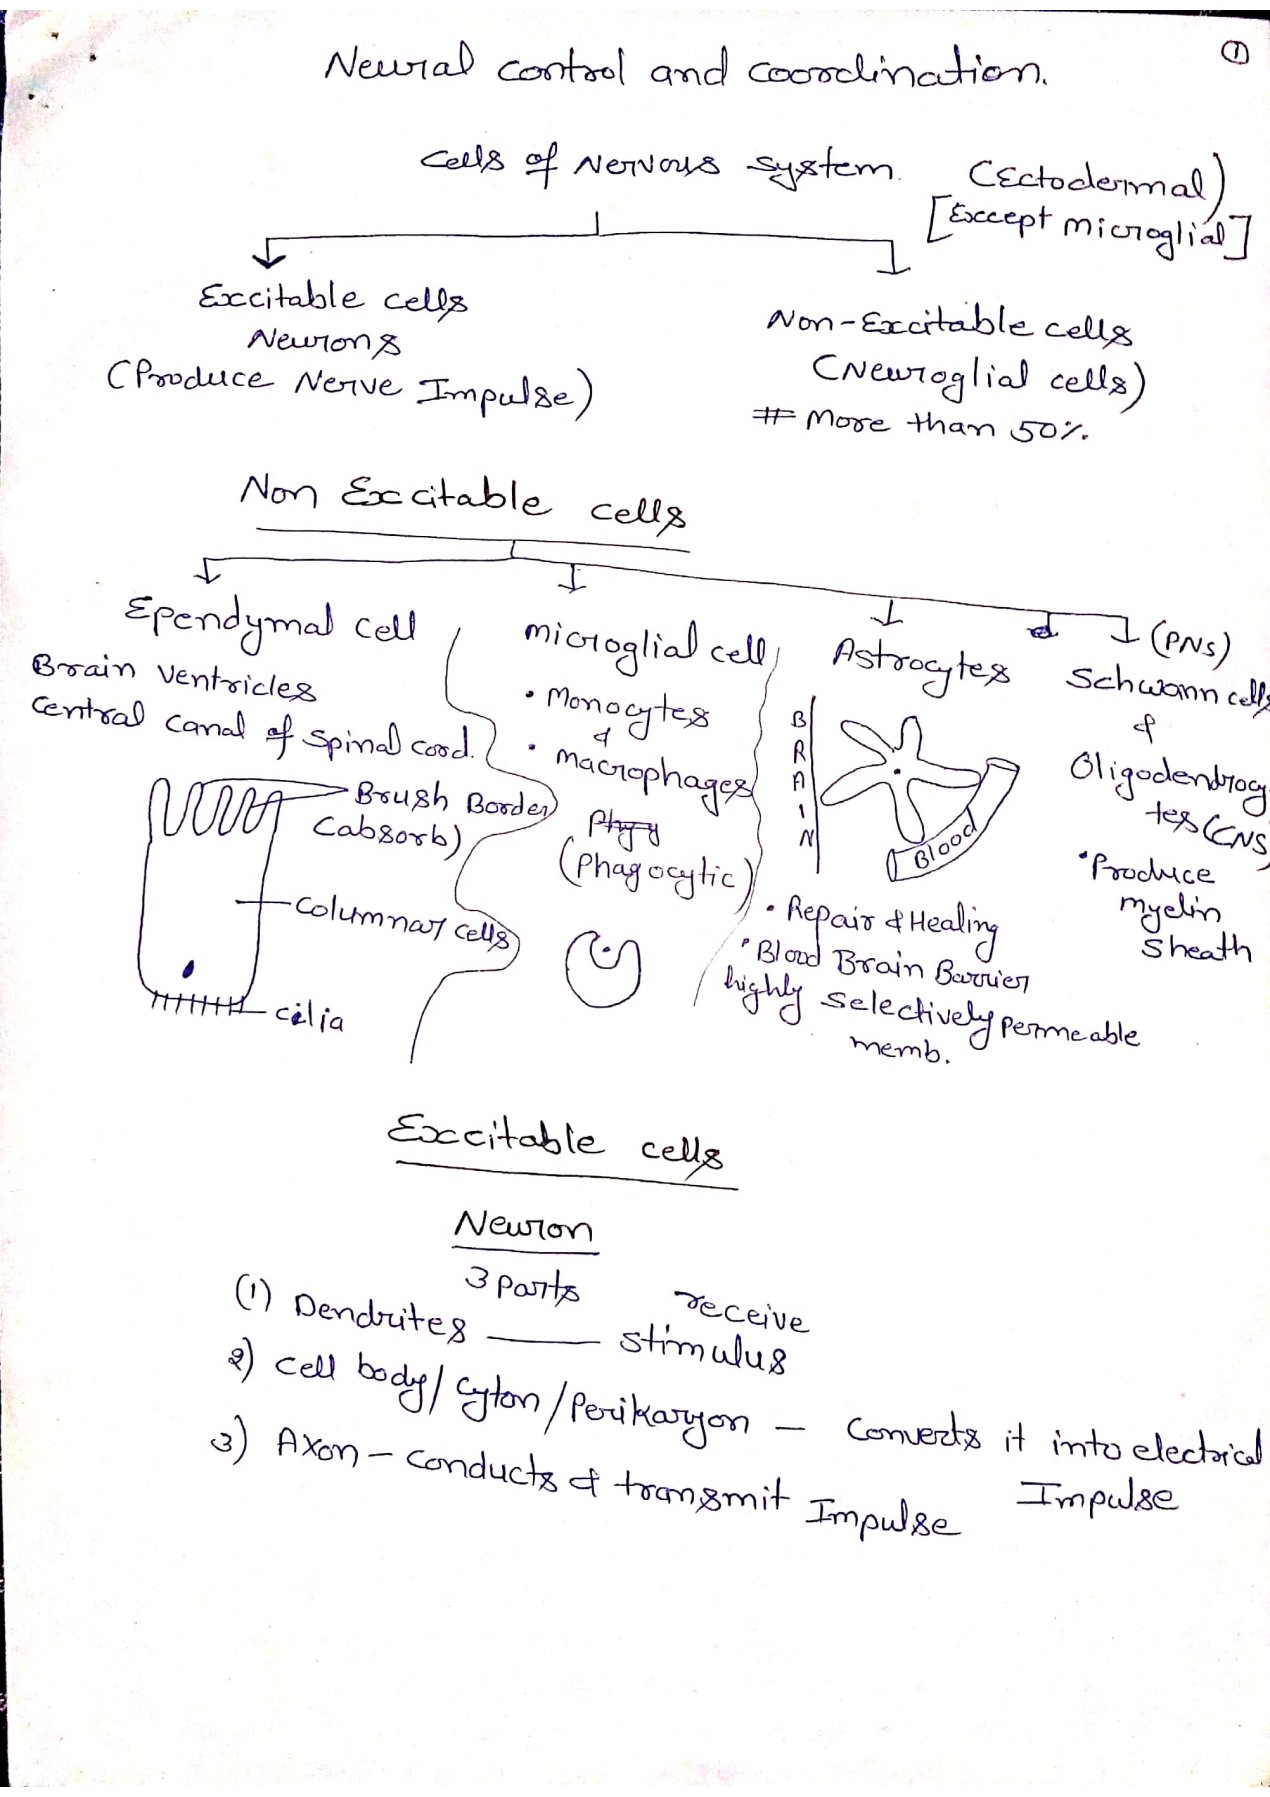 ①
Neural control and coordination.
Cells of Nervous system.
(Ectodermal)
[Except microglial]
Excitable cells
Neurons
(Produce Nerve Impulse)
Non-Excitable cells
(Neuroglial cells)
# More than 50%.
Non Excitable cells
Ependymal cell
Brain ventricles
Central canal of spinal cord.
Brush Border
(absorb)
Columnar cells
cilia
microglial cell
• Monocytes
&
• macrophages
(Phagocytic)
Astrocytes
BRAIN
Blood
• Repair & Healing
• Blood Brain Barrier
highly selectively permeable
memb.
(PNS)
Schwann cells
&
Oligodendrocy
tes (CNS)
• Produce
myelin
sheath
Excitable cells
Neuron
3 parts
(1) Dendrites —— receive
stimulus
2) Cell body/Cyton/Perikaryon — Converts it into electrical
Impulse
3) Axon – conducts & transmit Impulse